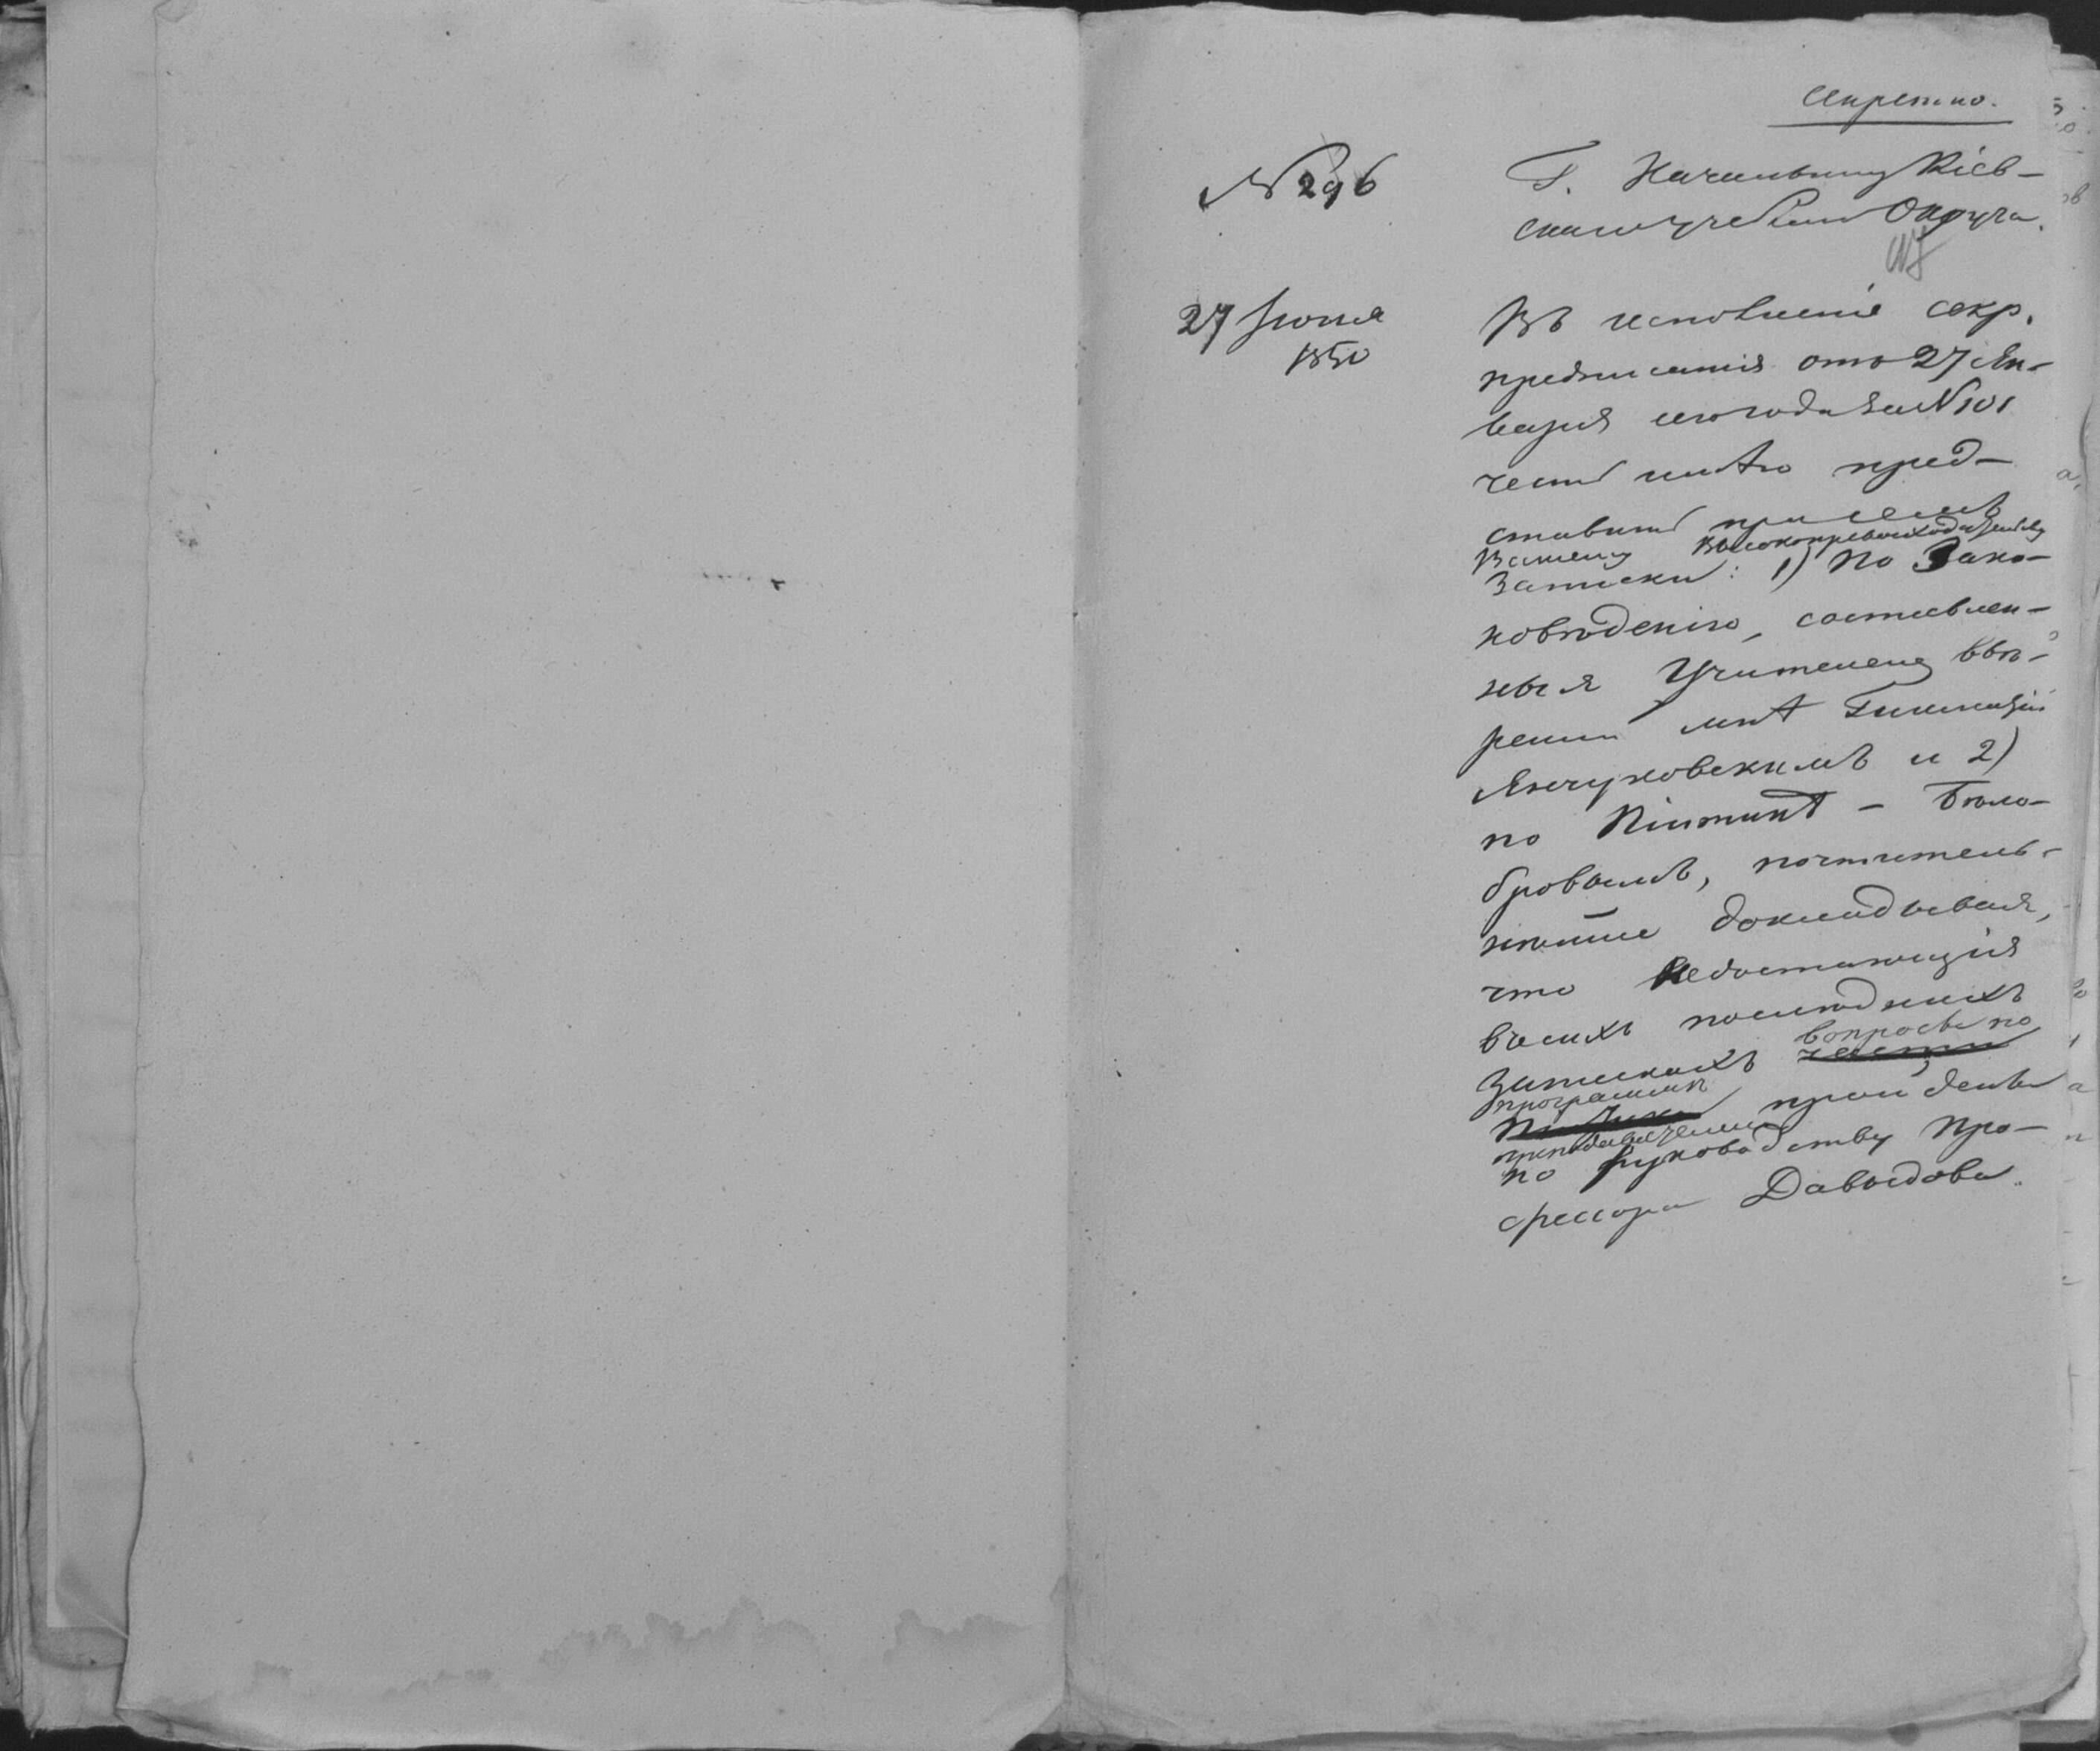 Секретно.
№ 296
Г. Начальнику Кіев-
скаго учебнаго Округа.
27 Іюня
1850
Въ исполненіе секр.
предписанія отъ 27 Ян-
варя сего года за № 101
честь имѣю пред-
ставить при семъ
Вашему Высокопревосходительству
Записки: 1) По Зако-
новѣдѣнію, составлен-
ныя Учителемъ ввѣ-
ренной мнѣ Гимназіи
Янчуковскимъ и 2)
по Піитикѣ – Бѣло-
бровымъ, почтитель-
нѣйше докладывая,
что недостающія
въ сихъ послѣднихъ
вопросы по
Запискахъ части
программѣ
пройдены
преподавателемъ
по руководству Про-
фессора Давыдова.